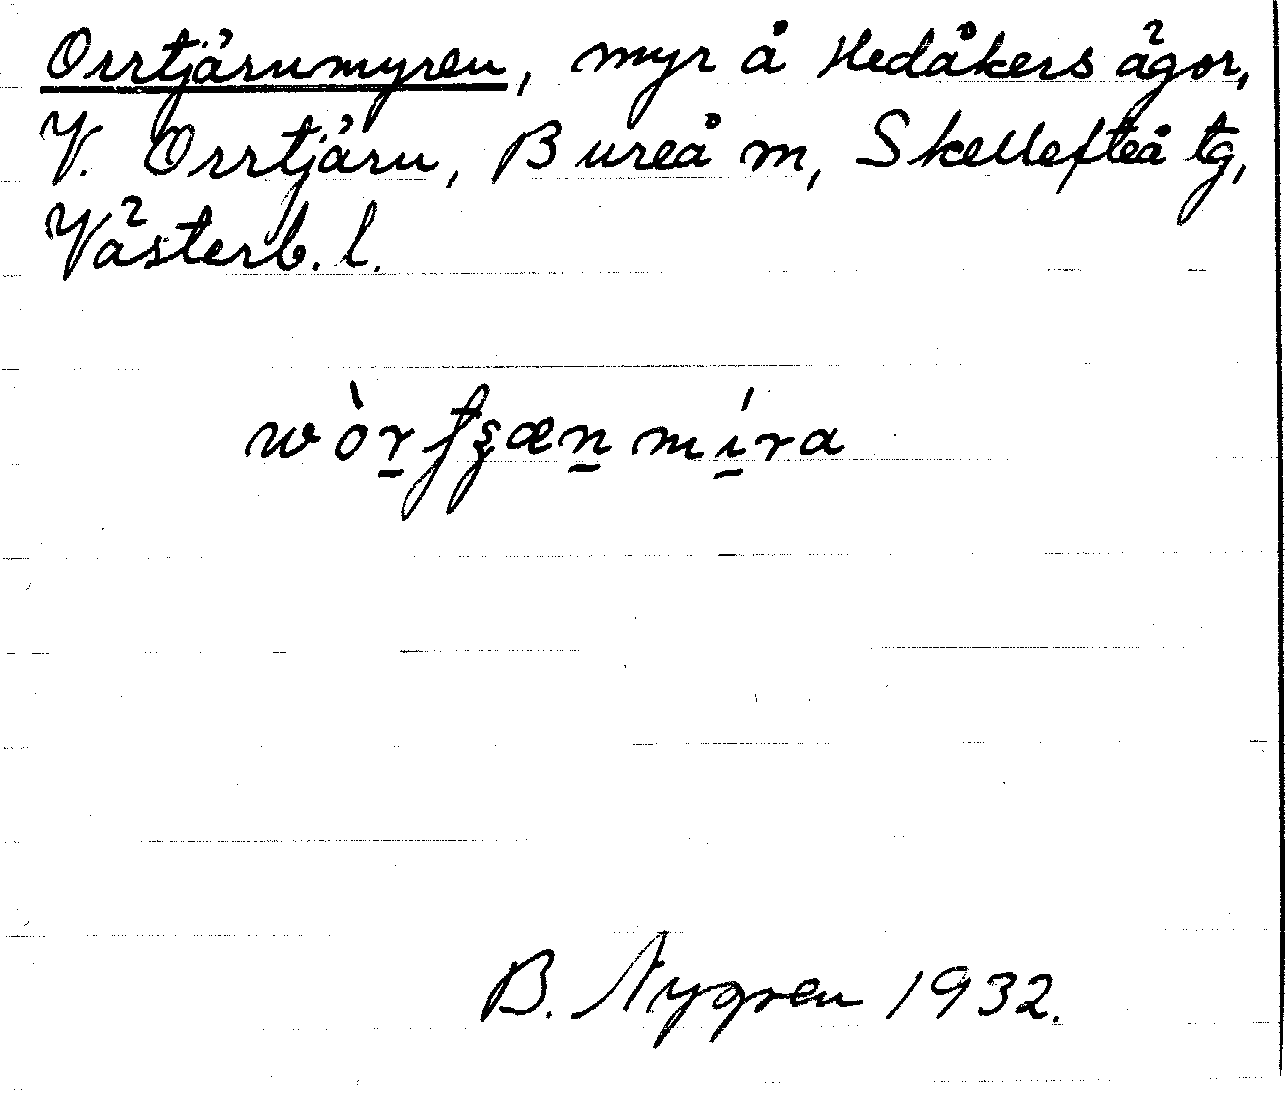 Orrtjärnmyren, myr å Hedåkers ägor,
V. Orrtjärn, Bureå m, Skellefteå tg,
Västerb. l.
wòr̠ʄʂæn̠mí̠ra
B. Nygren 1932.